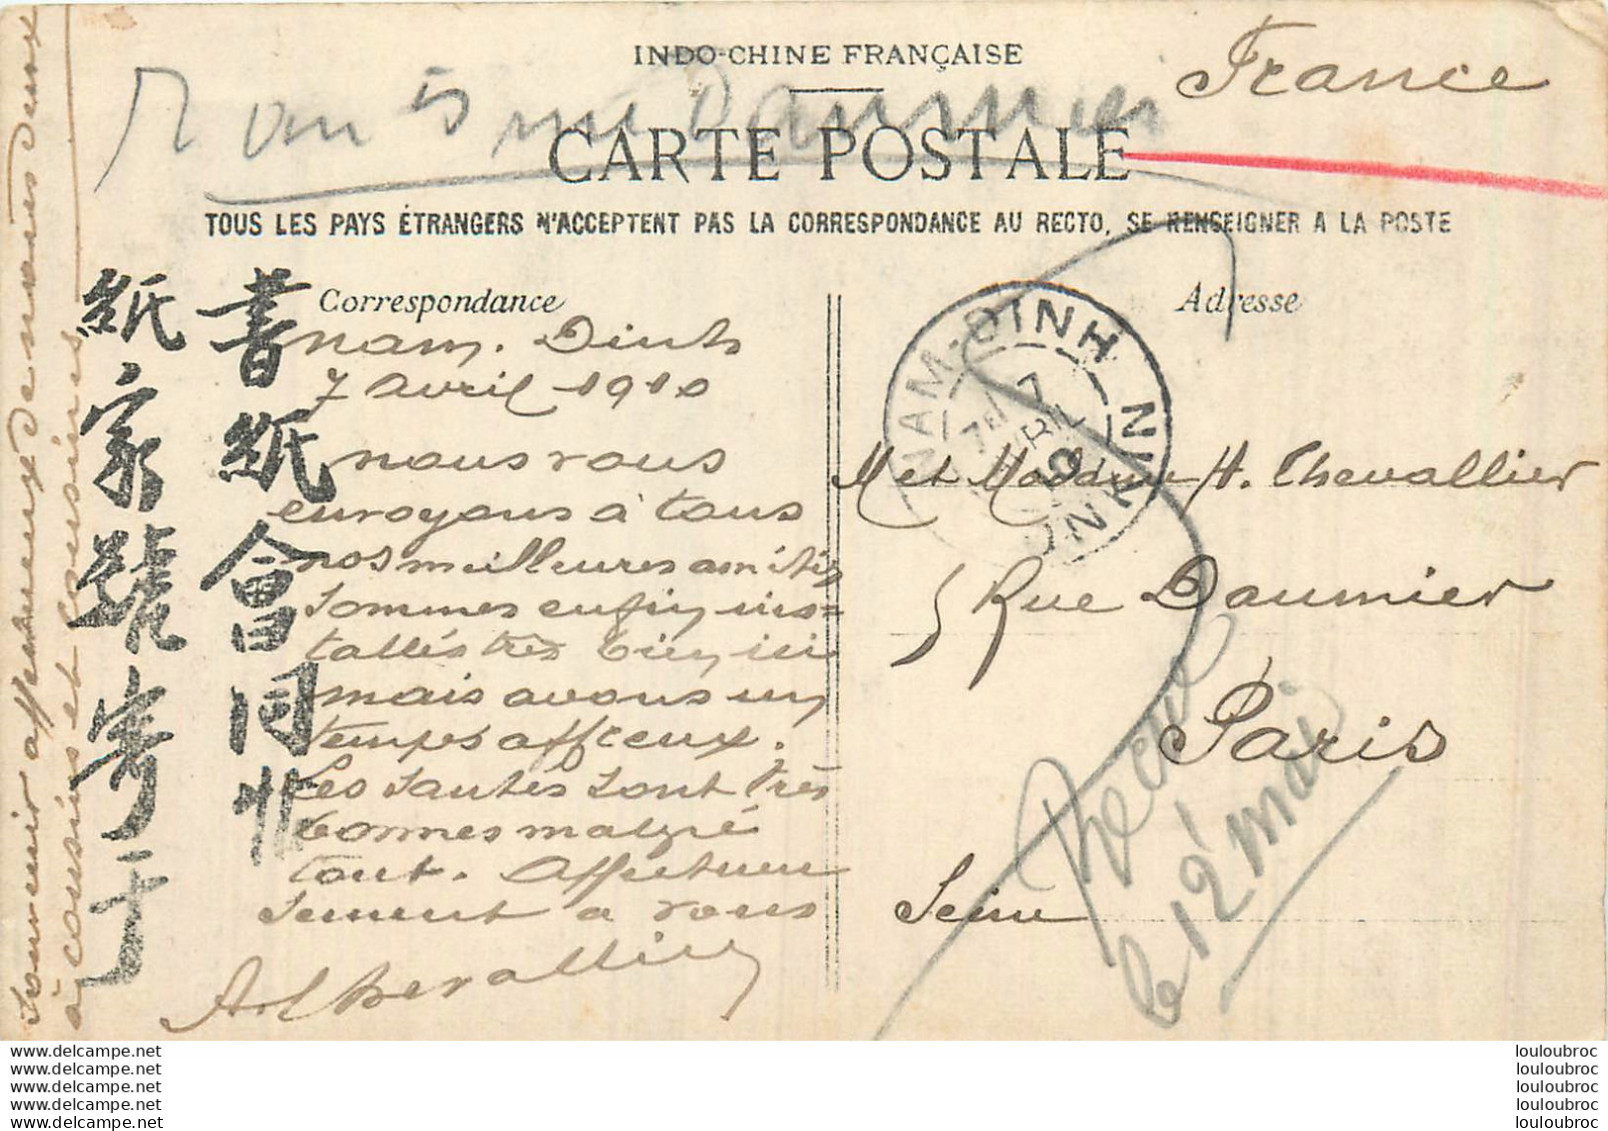 INDO-CHINE FRANÇAISE
France
5 Daumier
CARTE POSTALE
TOUS LES PAYS ÉTRANGERS N'ACCEPTENT PAS LA CORRESPONDANCE AU RECTO, SE RENSEIGNER A LA POSTE
Correspondance
Nam. Dinh
7 avril 1910
nous vous
envoyons à tous
nos meilleures amitiés
sommes enfin ins=
tallés très bien ici
mais avons un
temps affreux.
Les santés sont très
bonnes malgré
tout. Affectueu
sement a vous
A Chevallier
Souvenir affectueux de nous deux
à cousins et cousines
書紙會同
紙家號寄于
Adresse
NAM-DINH
TONKIN
7 AVRIL
M et Madame H. Chevallier
5 Rue Daumier
Paris
Seine
Reçue
le 12 mai
www.delcampe.net
www.delcampe.net
www.delcampe.net
www.delcampe.net
www.delcampe.net
louloubroc
louloubroc
louloubroc
louloubroc
louloubroc